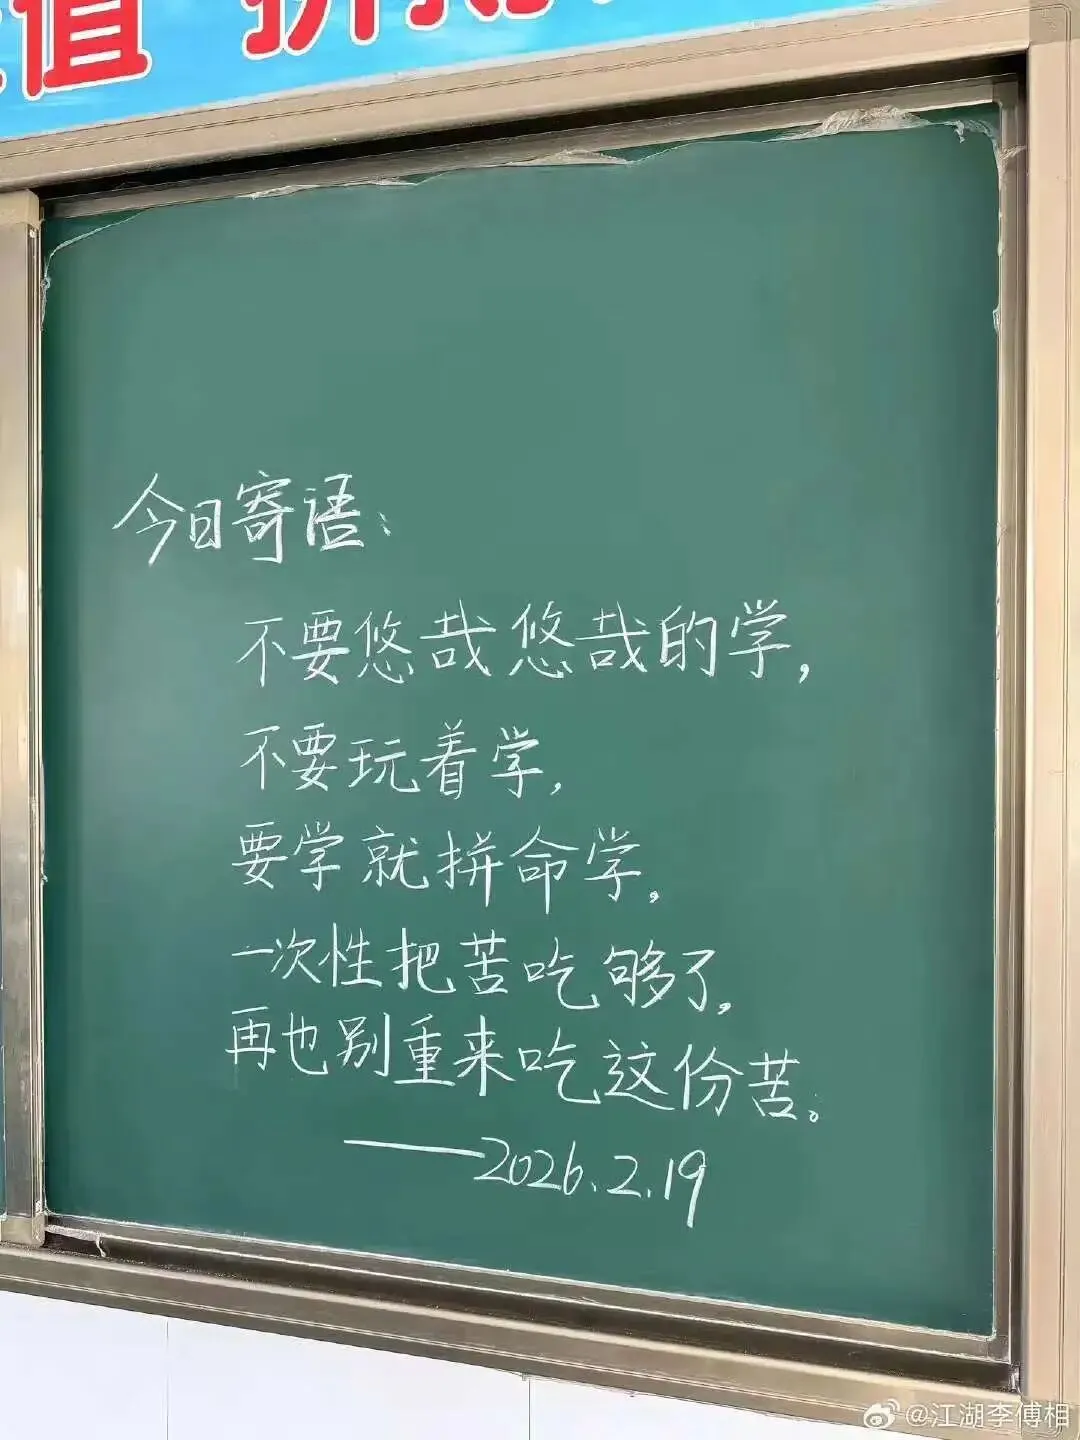 值 拼
今日寄语:
不要悠哉悠哉的学,
不要玩着学,
要学就拼命学,
一次性把苦吃够了,
再也别重来吃这份苦。
——2026.2.19
@江湖李傅相